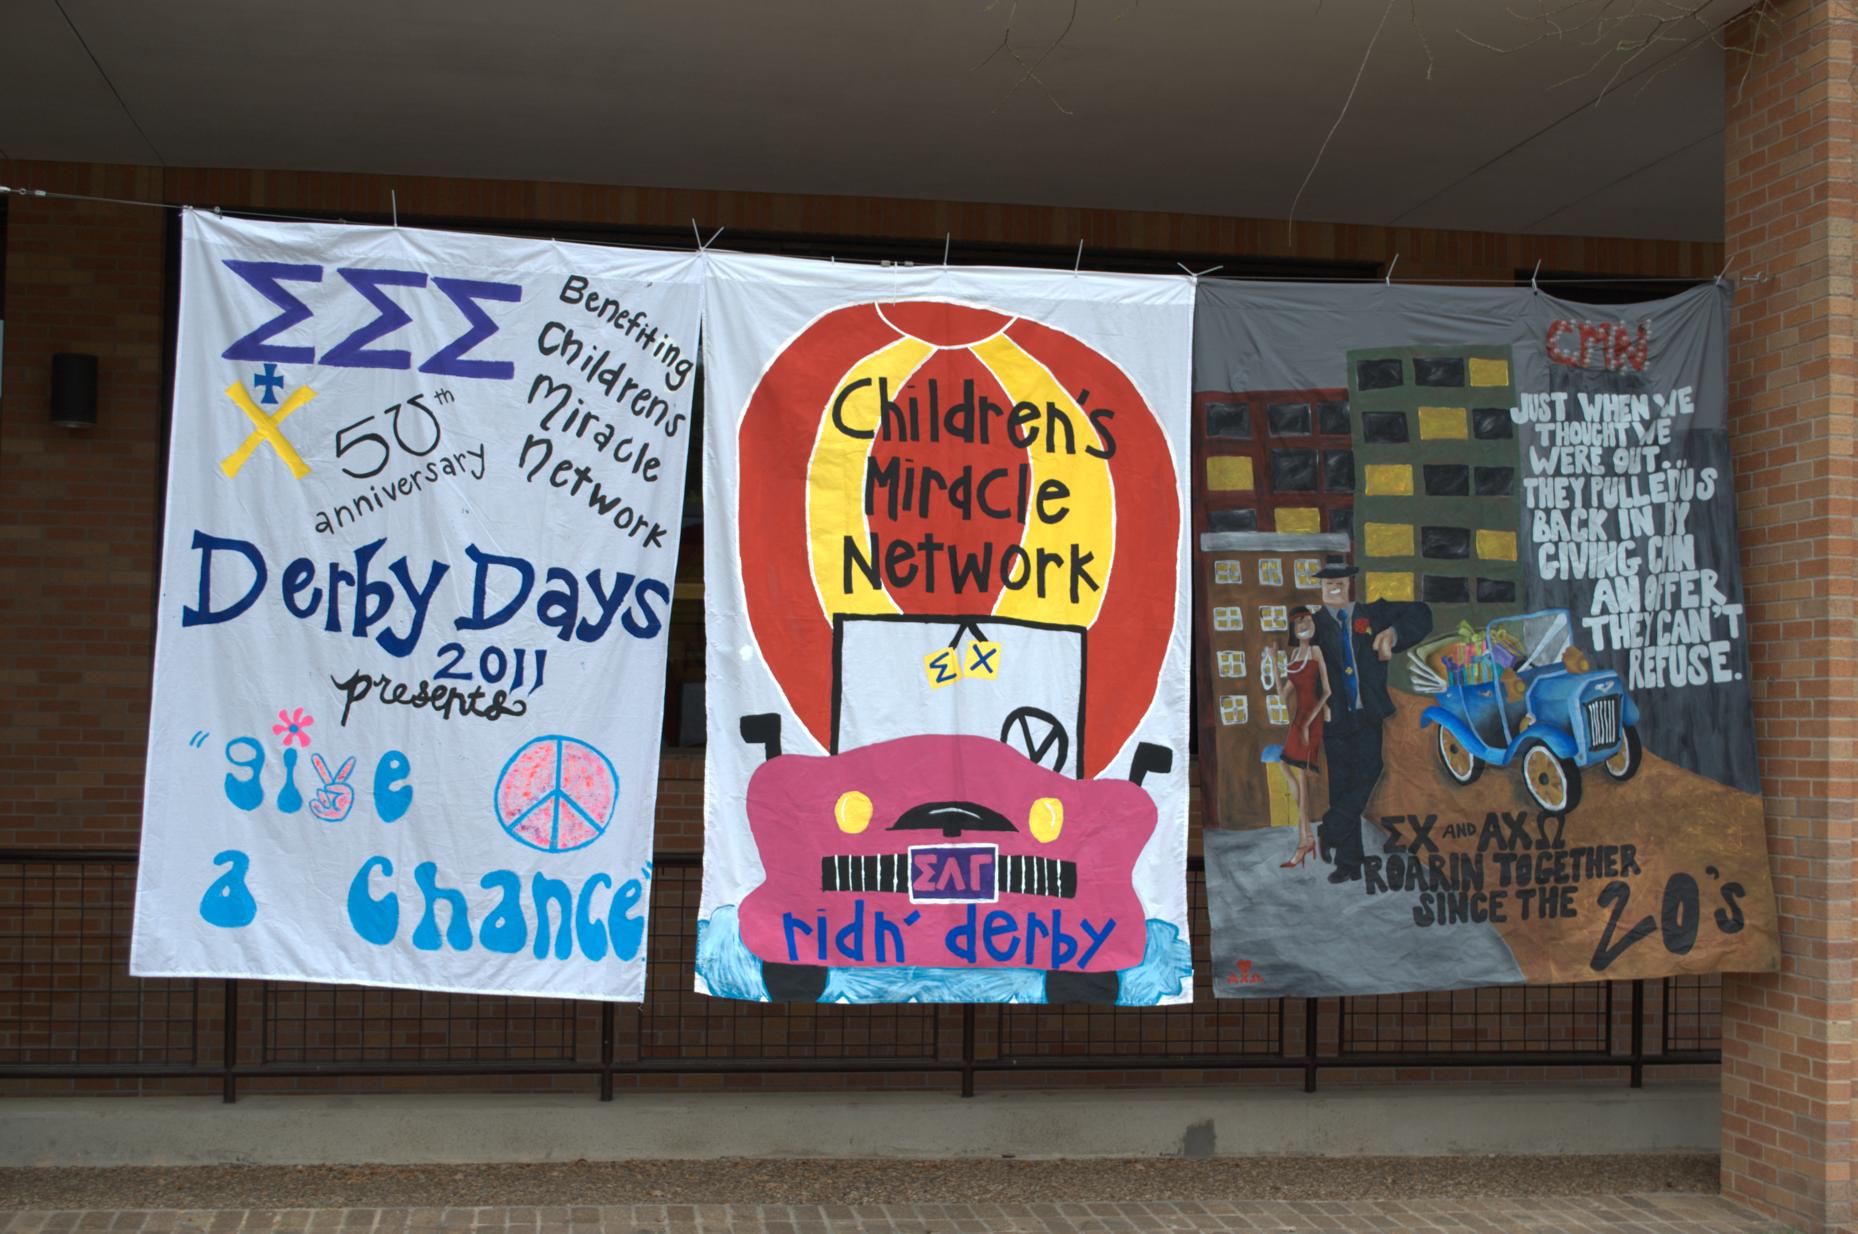 ΣΣΣ
X
50th
anniversary
Benefiting
Children's
Miracle
Network
Derby Days
2011
presents
"give
a chance"
Children's
Miracle
Network
Σ X
ΣΛΓ
ridn' derby
CMN
JUST WHEN WE
THOUGHT WE
WERE OUT...
THEY PULLED US
BACK IN BY
GIVING CMN
AN OFFER
THEY CAN'T
REFUSE.
ΣX AND AXΩ
ROARIN TOGETHER
SINCE THE 20'S
AXΩ